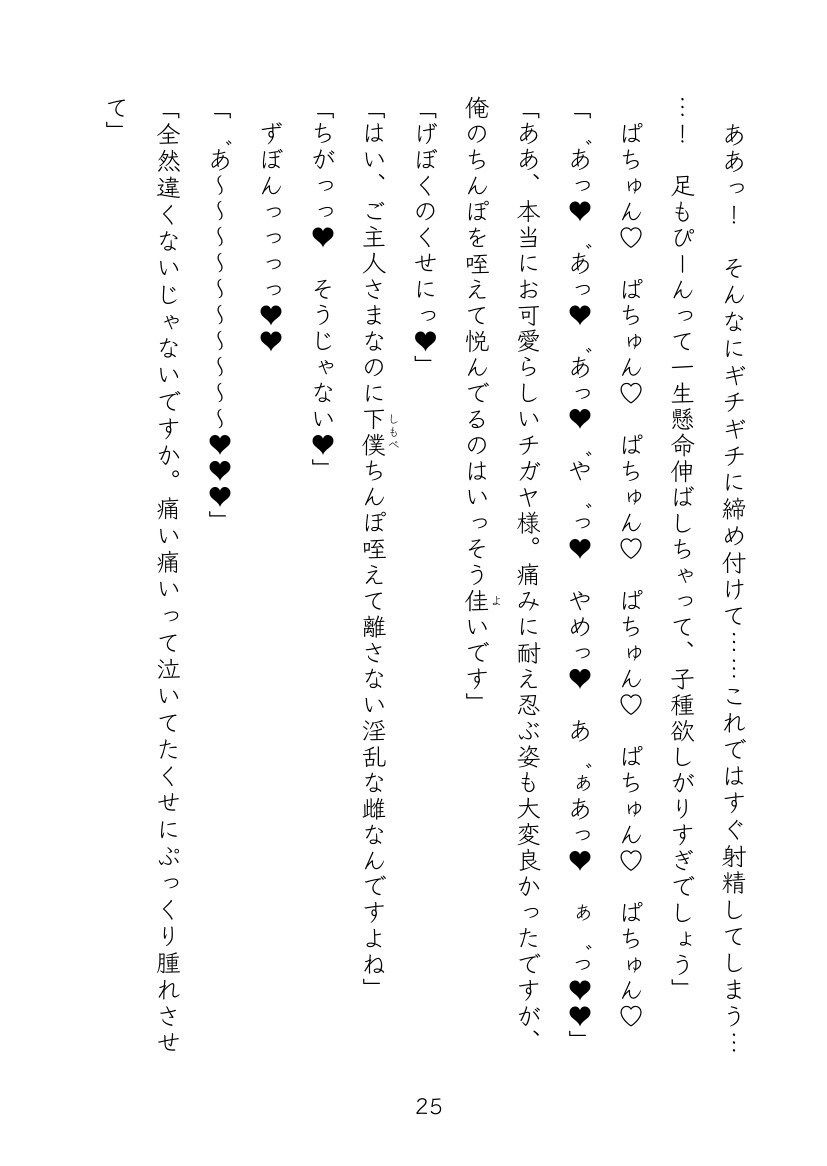 ああっ！　そんなにギチギチに締め付けて……これではすぐ射精してしまう…
…！　足もぴーんって一生懸命伸ばしちゃって、子種欲しがりすぎでしょう」
ぱちゅん♡　ぱちゅん♡　ぱちゅん♡　ぱちゅん♡　ぱちゅん♡　ぱちゅん♡
「゛あっ♥　゛あっ♥　゛あっ♥　゛や゛っ♥　やめっ♥　あ゛ぁあっ♥　ぁ゛っ♥♥」
「ああ、本当にお可愛らしいチガヤ様。痛みに耐え忍ぶ姿も大変良かったですが、
俺のちんぽを咥えて悦んでるのはいっそう佳いです」
よ
「げぼくのくせにっ♥」
「はい、ご主人さまなのに下僕ちんぽ咥えて離さない淫乱な雌なんですよね」
しもべ
「ちがっっ♥　そうじゃない♥」
ずぼんっっっっ♥♥
「゛あ～～～～～～～～～～♥♥♥」
「全然違くないじゃないですか。痛い痛いって泣いてたくせにぷっくり腫れさせ
て」
25